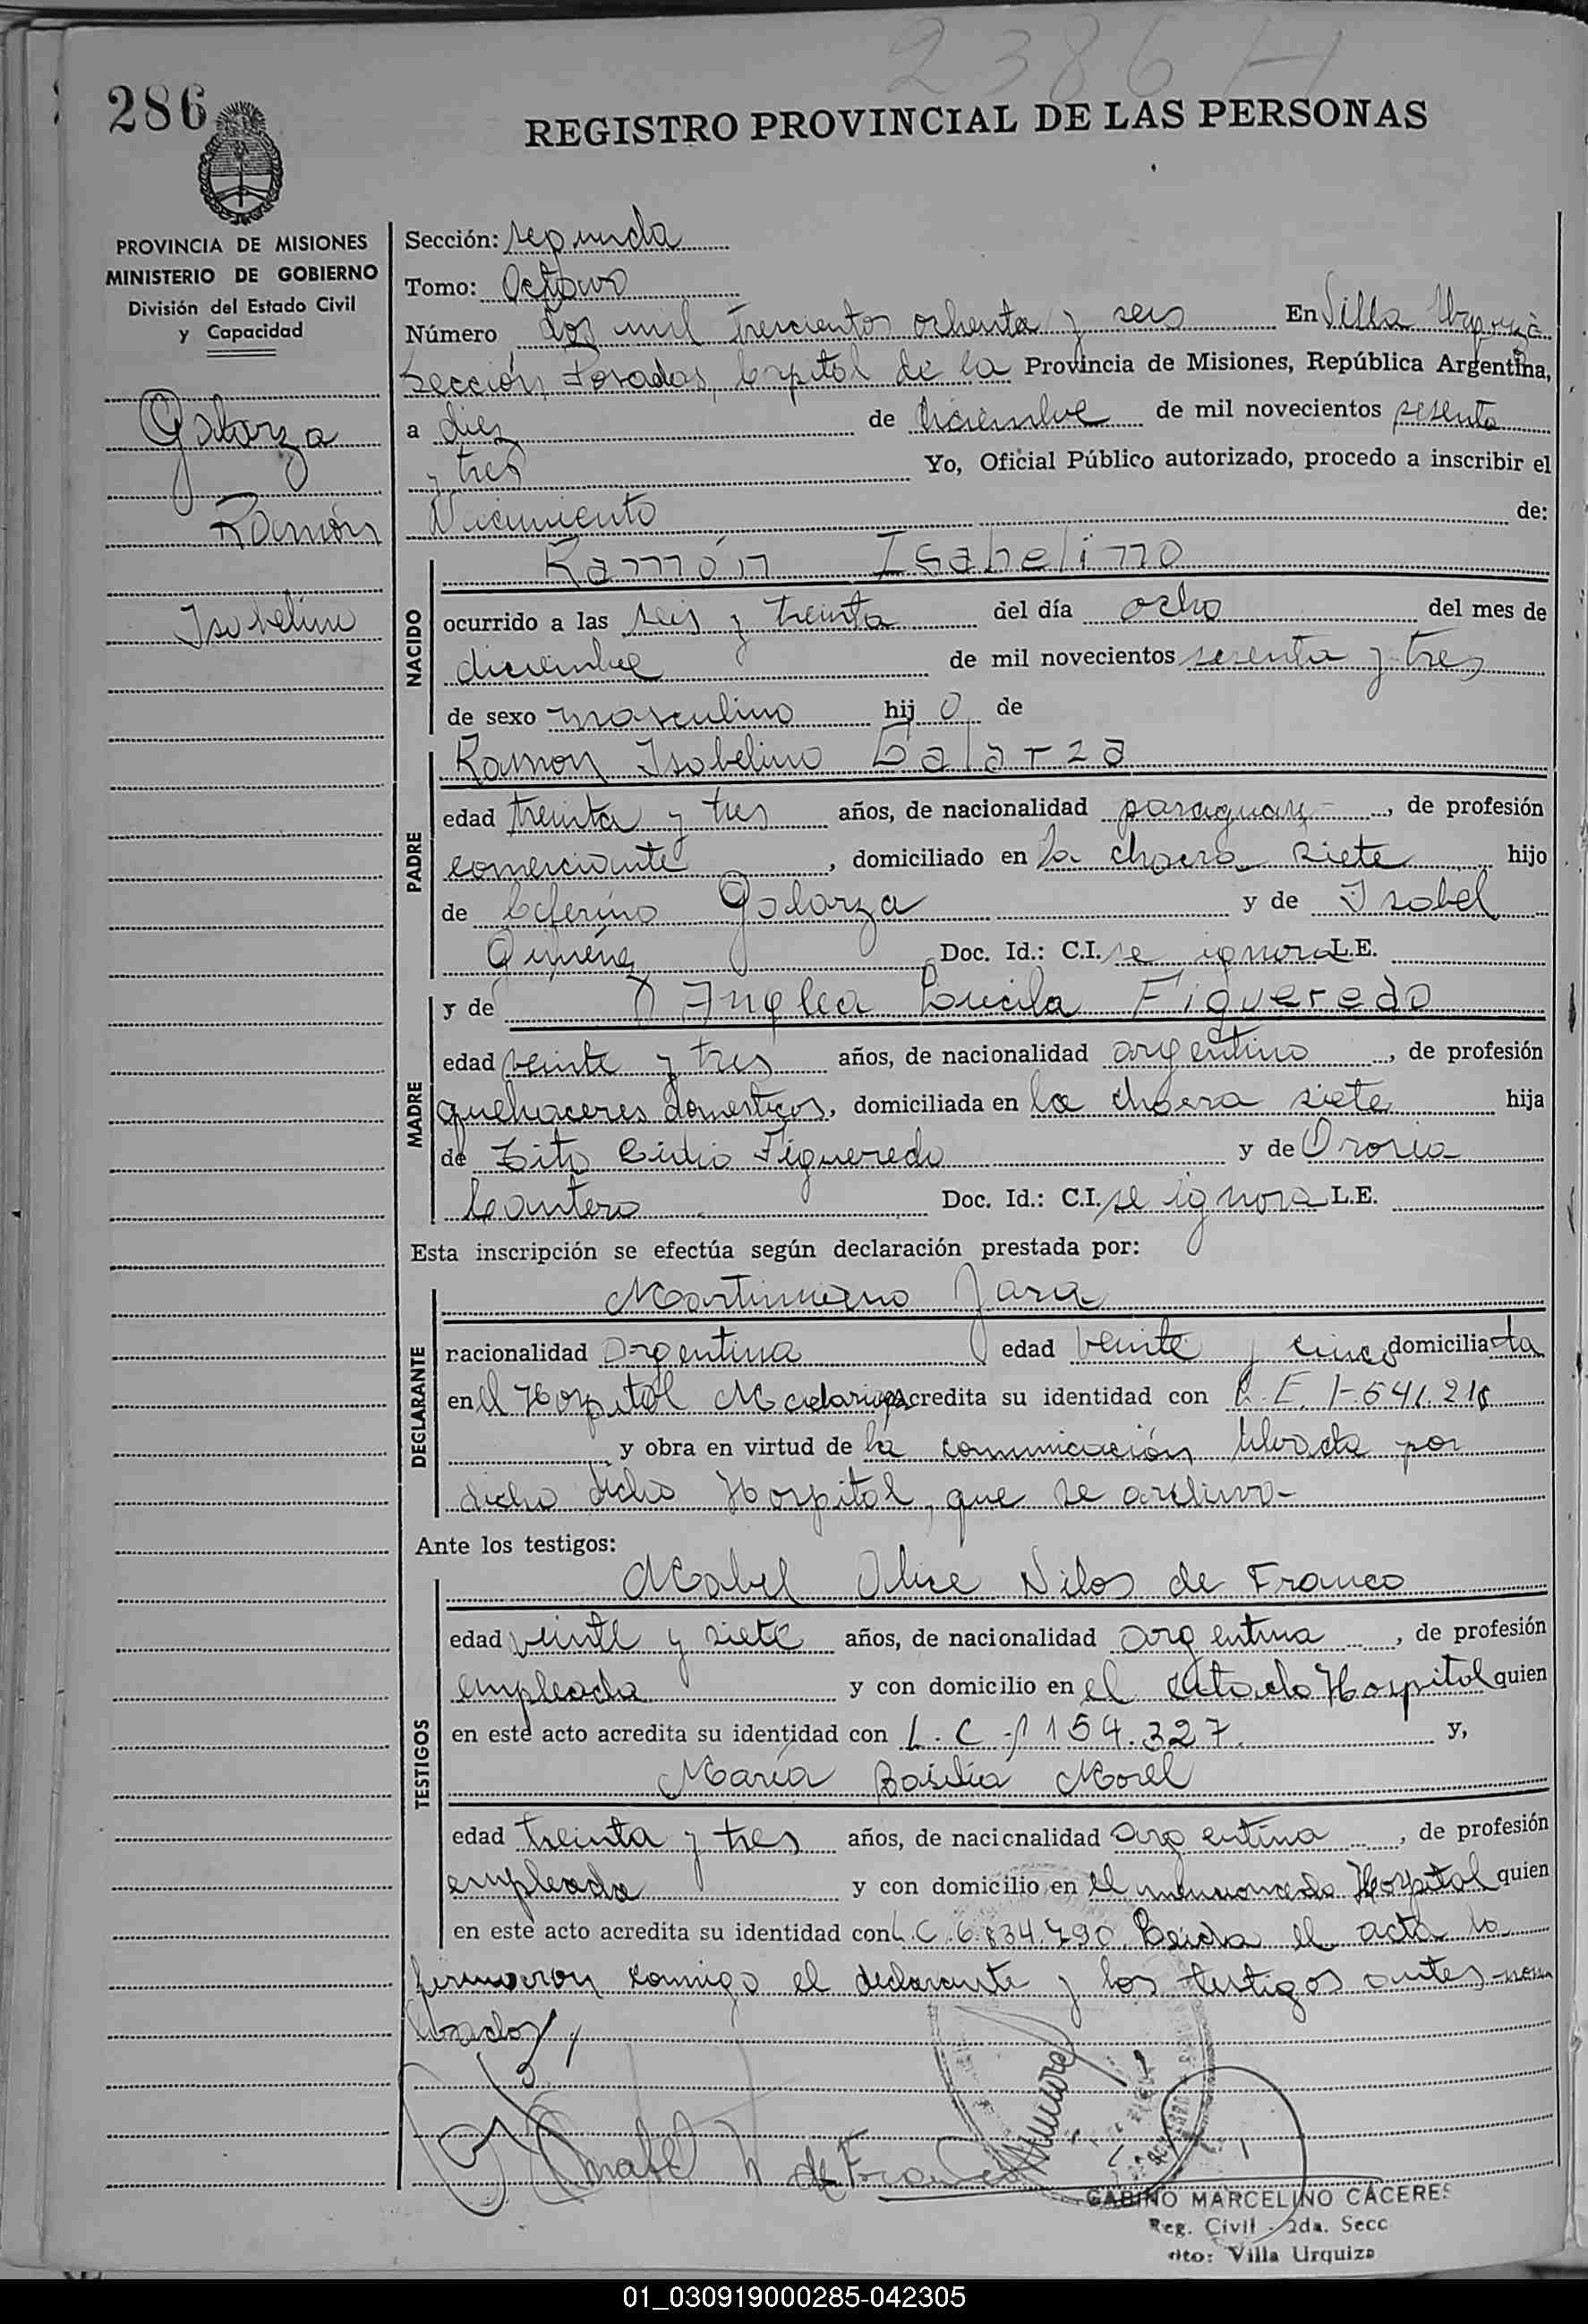 2386 H
286
REGISTRO PROVINCIAL DE LAS PERSONAS
PROVINCIA DE MISIONES
MINISTERIO DE GOBIERNO
División del Estado Civil
y Capacidad
Galarza
Ramón
Isabelino
Sección: segunda
Tomo: Octavo
Número dos mil trescientos ochenta y seis En Villa Urquiza
Sección, Posadas, Capital de la Provincia de Misiones, República Argentina,
a diez de diciembre de mil novecientos sesenta
y tres Yo, Oficial Público autorizado, procedo a inscribir el
Nacimiento de:
NACIDO
Ramón Isabelino
ocurrido a las seis y treinta del día ocho del mes de
diciembre de mil novecientos sesenta y tres
de sexo masculino hij o de
PADRE
Ramon Isabelino Galarza
edad treinta y tres años, de nacionalidad paraguay, de profesión
comerciante, domiciliado en la chacra siete hijo
de Ceferino Galarza y de Isabel
Doc. Id.: C.I. se ignora L.E.
MADRE
y de Lucila Figueredo
edad veinte y tres años, de nacionalidad argentino, de profesión
quehaceres domesticos, domiciliada en la chacra siete hija
de Tito Figueredo y de
Cantero Doc. Id.: C.I. se ignora L.E.
Esta inscripción se efectúa según declaración prestada por:
DECLARANTE
Martimiano Jara
nacionalidad argentina edad veinte y cinco domicilia ta
en el Hospital Madariaga acredita su identidad con
y obra en virtud de la comunicación librada por
dicho dicho Hospital, que se archiva-
Ante los testigos:
TESTIGOS
Mabel Alice Nilos de Franco
edad veinte y siete años, de nacionalidad argentina, de profesión
empleada y con domicilio en el citado Hospital quien
en este acto acredita su identidad con L.C. 1154.327. y,
María Basilia Morel
edad treinta y tres años, de nacionalidad argentina, de profesión
empleada y con domicilio en el mencionado Hospital quien
en este acto acredita su identidad con L.C. 6.834.790. Leida el acta la
firmaron conmigo el declarante y los testigos antes nom
brados
Mabel N de Franco
GABINO MARCELINO CACERES
Reg. Civil - 2da. Secc
dto: Villa Urquiza
01_030919000285-042305